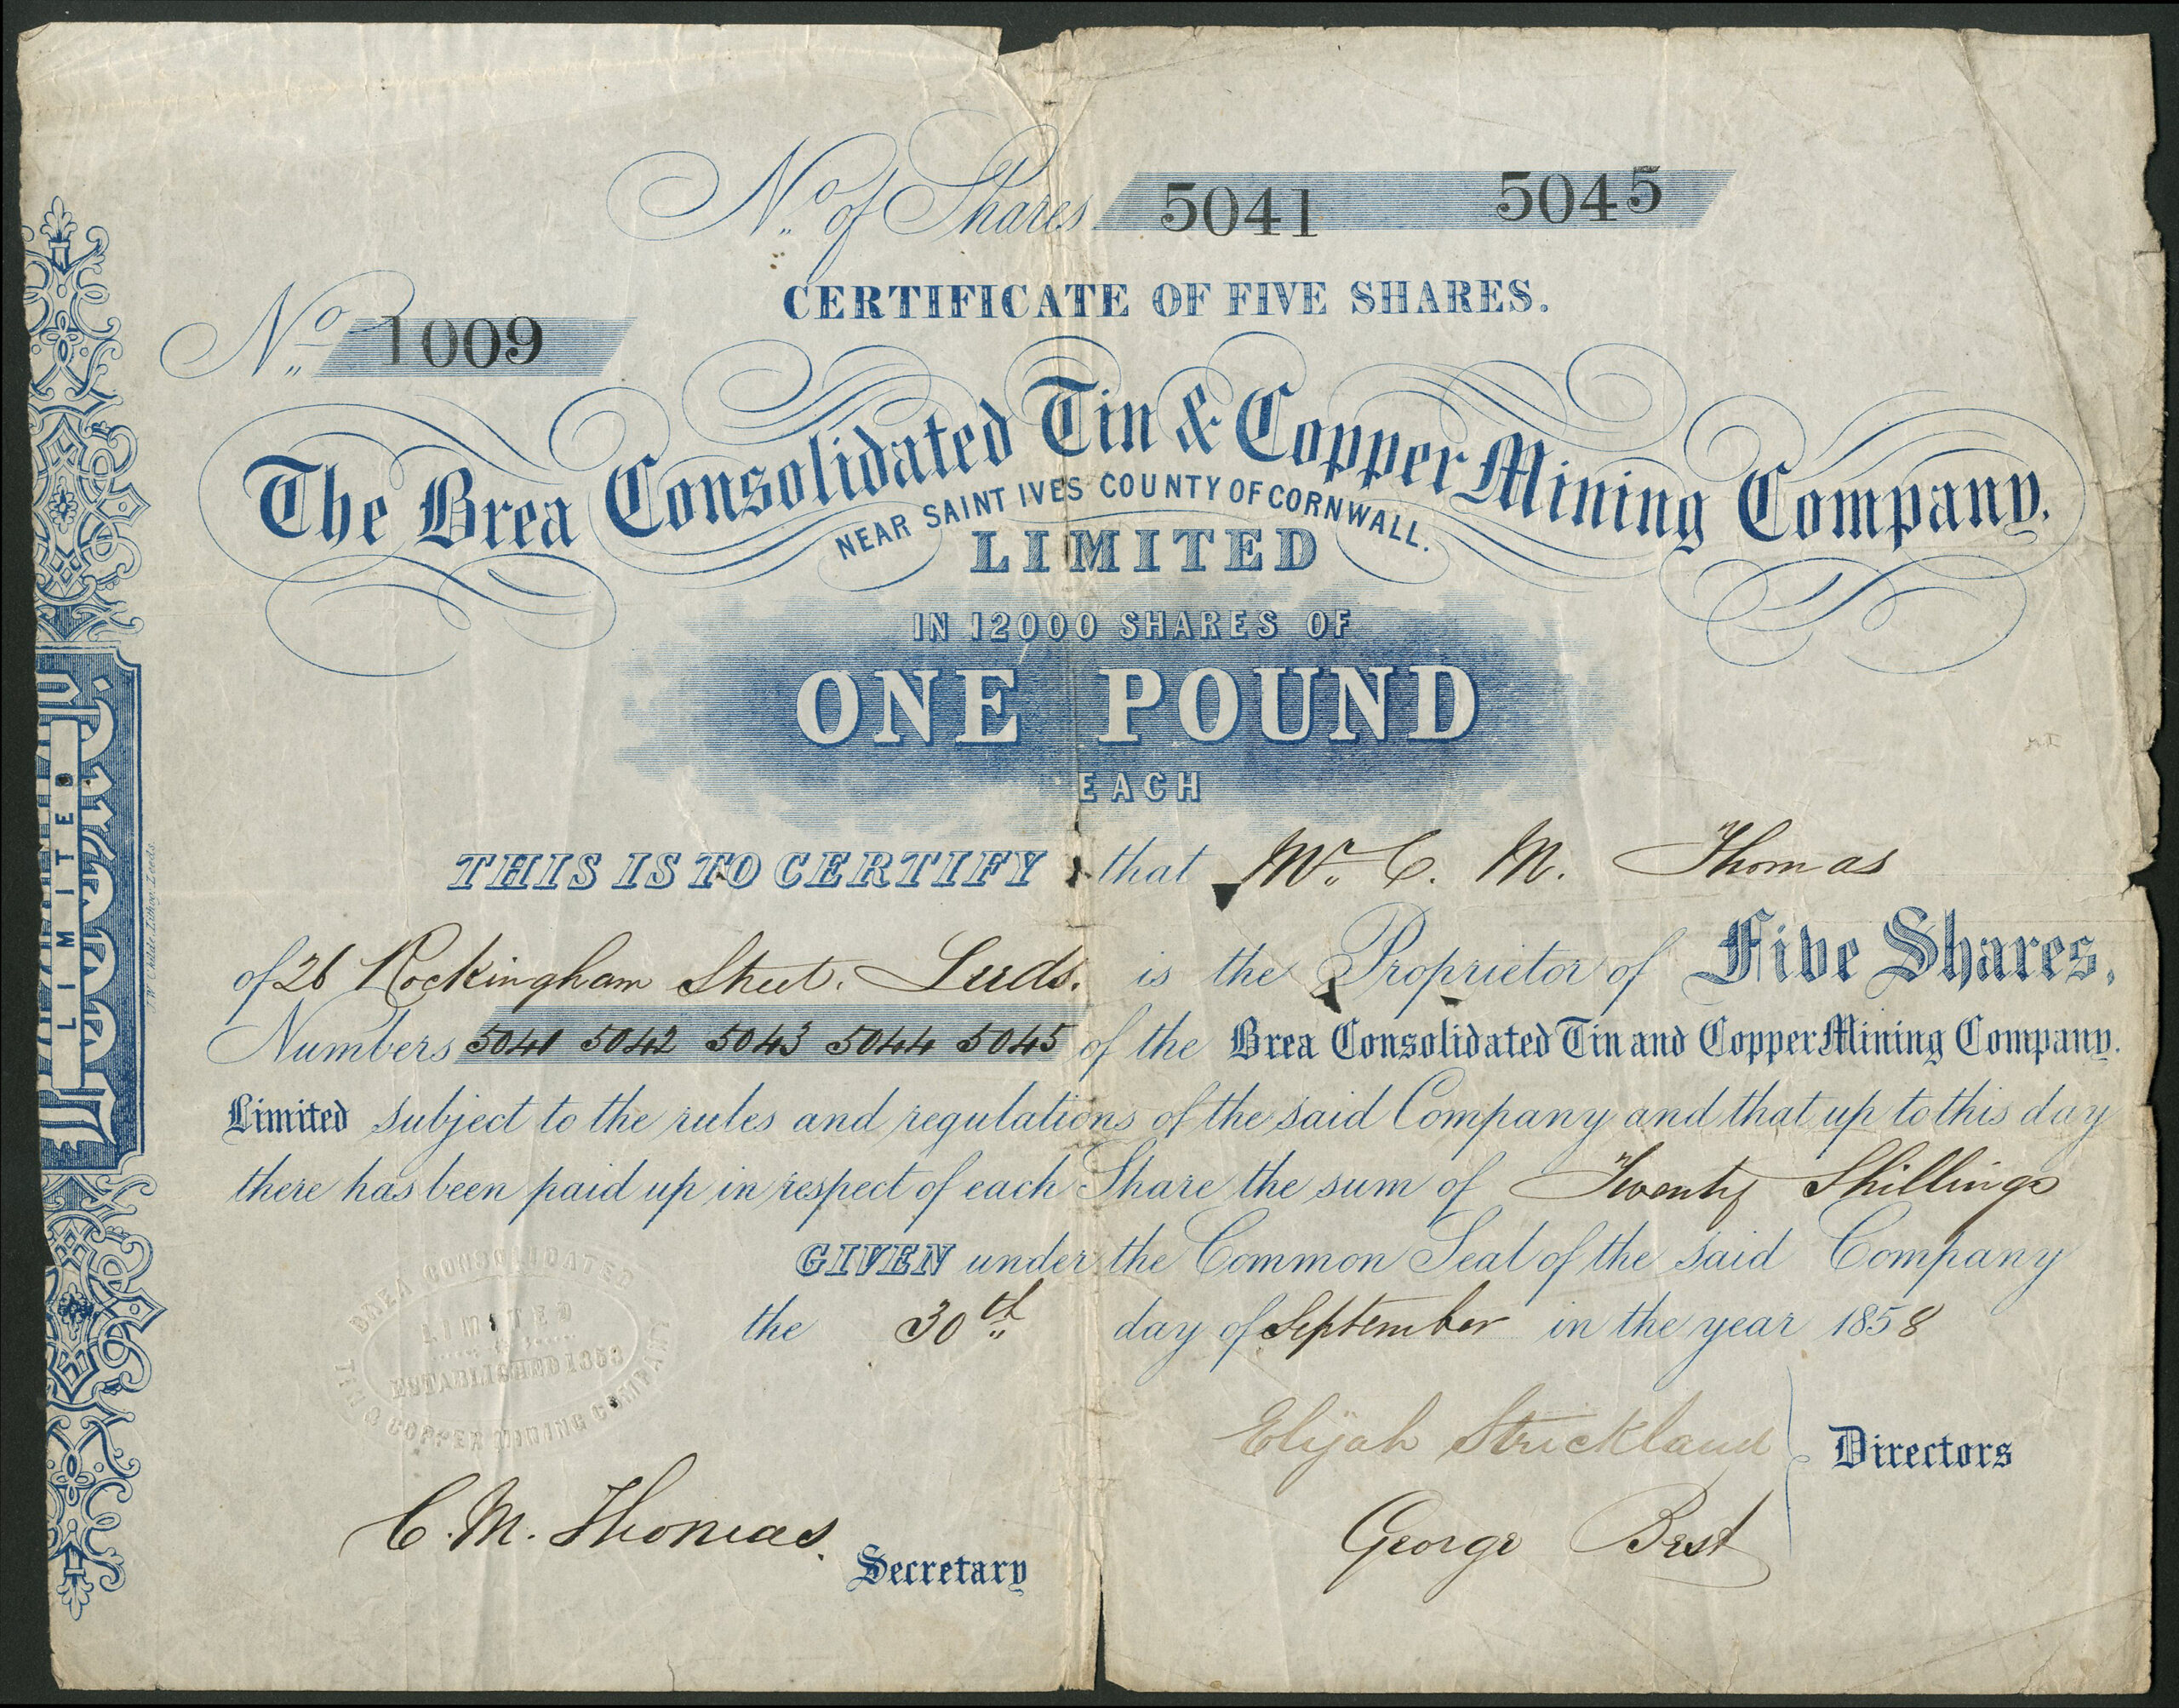 No. of Shares 5041 5045
CERTIFICATE OF FIVE SHARES.
No. 1009
The Brea Consolidated Tin & Copper Mining Company.
NEAR SAINT IVES COUNTY OF CORNWALL.
LIMITED
IN 12000 SHARES OF
ONE POUND
EACH
THIS IS TO CERTIFY that Mr. C. M. Thomas
of 26 Rockingham Street. Leeds. is the Proprietor of Five Shares,
Numbers 5041 5042 5043 5044 5045 of the Brea Consolidated Tin and Copper Mining Company.
Limited subject to the rules and regulations of the said Company and that up to this day
there has been paid up in respect of each Share the sum of Twenty Shillings
GIVEN under the Common Seal of the said Company
the 30th day of September in the year 1858
BREA CONSOLIDATED
TIN & COPPER MINING COMPANY
LIMITED
ESTABLISHED 1853
Elijah Strickland
George Best
Directors
C. M. Thomas.
Secretary
LIMITED
W. Childe. Lithog. Leeds.